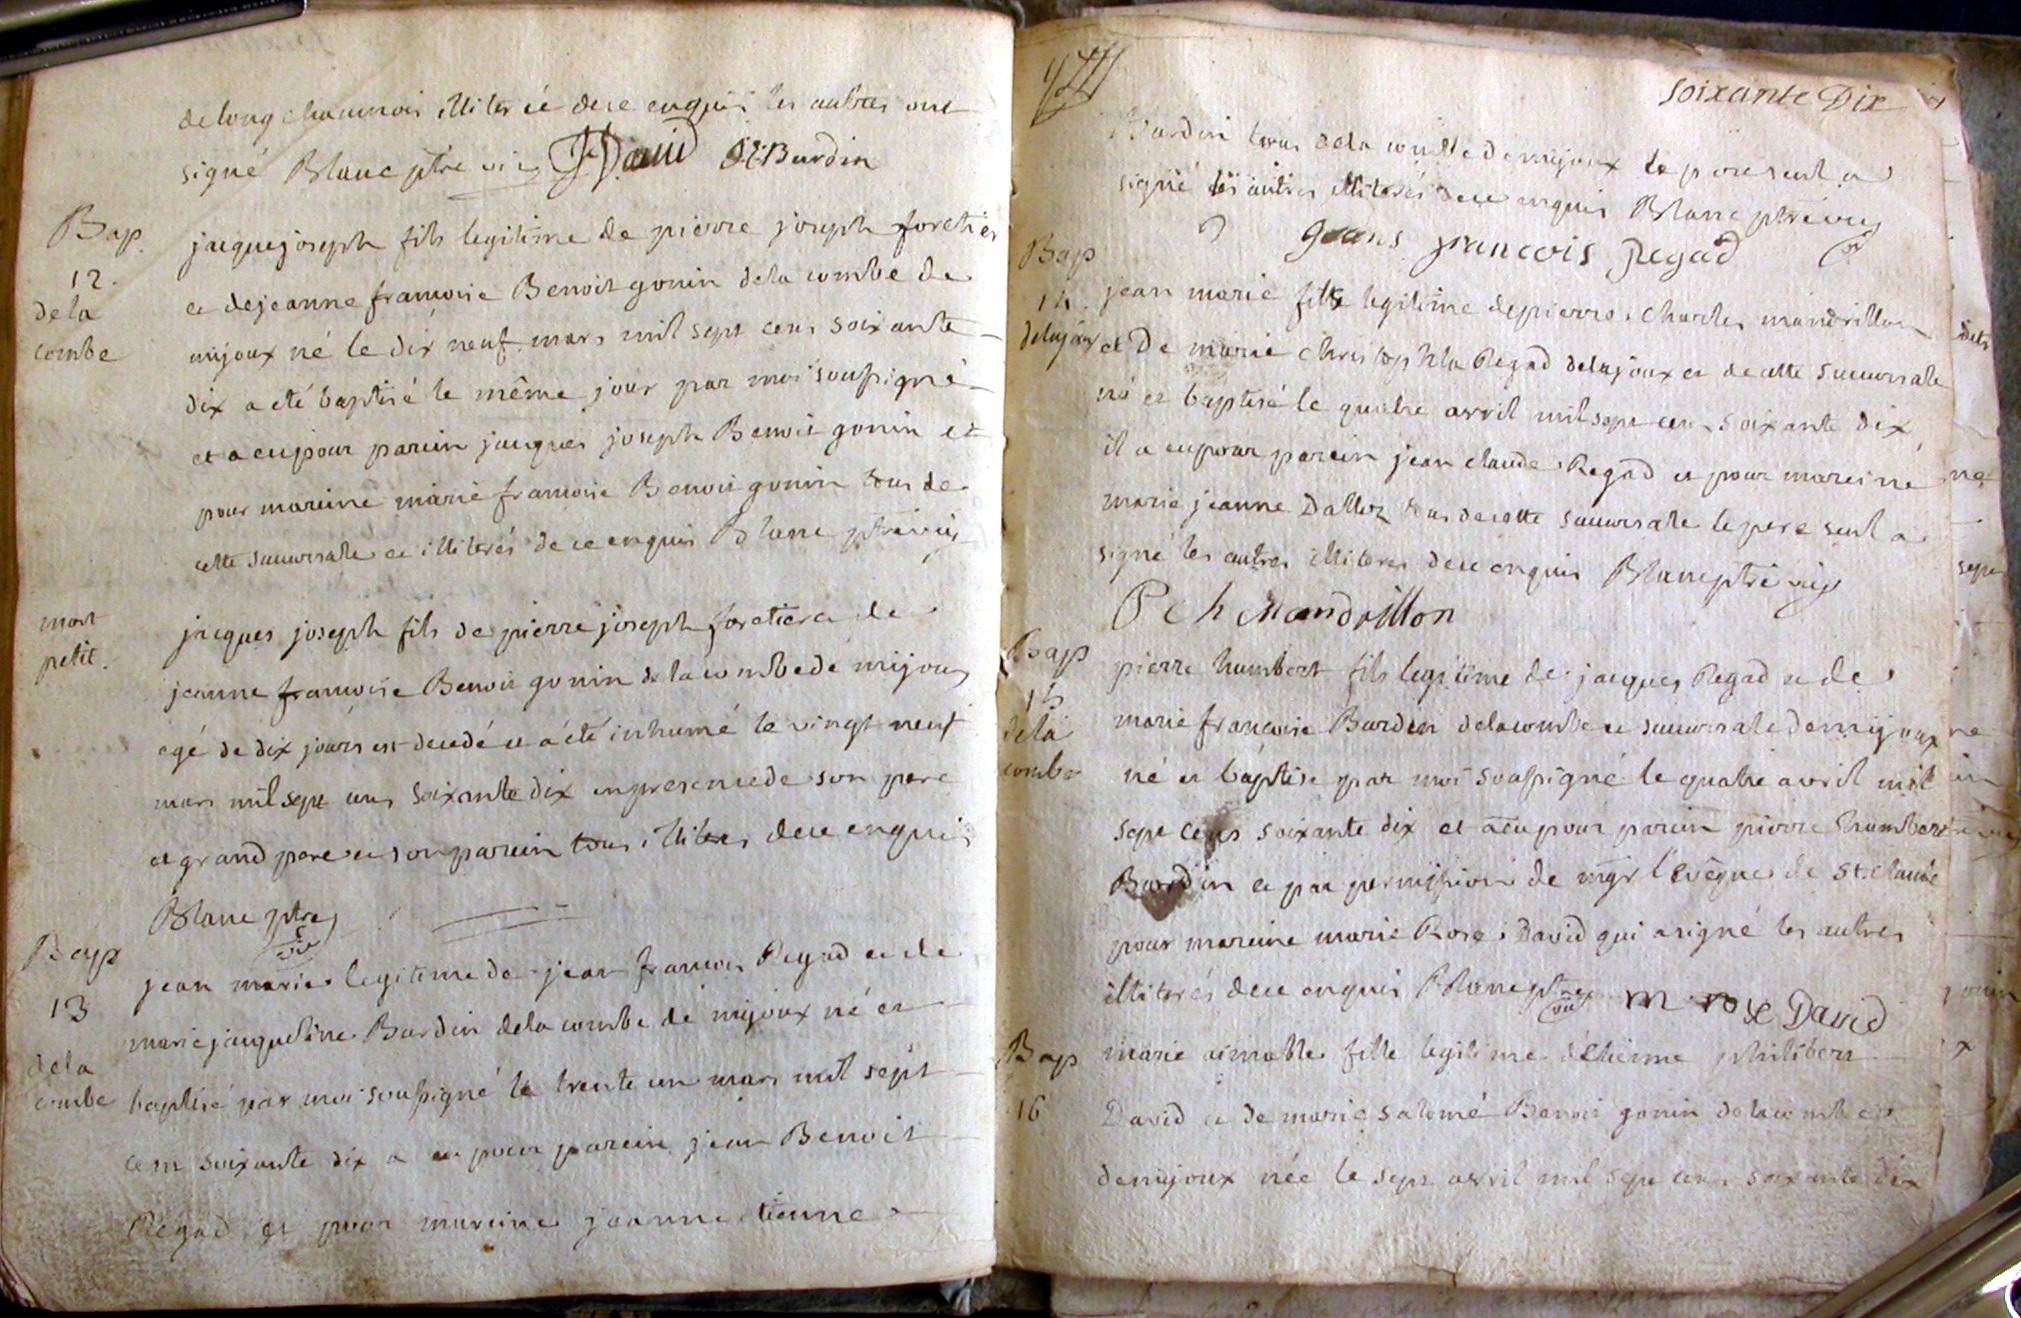 de longchaumois illiteré de ce enquis les autres ont
signé Blanc ptre vic J David JE Burdin
Bap.
12.
de la
combe
jacque joseph fils legitime de pierre joseph foretier
et de jeanne francoise Benoit gonin de la combe de
mijoux né le dix neuf mars mil sept cens soixante
dix a eté baptisé le même jour par moi soussigné
et a eu pour parein jacques joseph Benoit gonin et
pour mareine marie francoise Benoit gonin tous de
cette succursale et illiterés de ce enquis Blanc ptre vic
mort
petit.
jacques joseph fils de pierre joseph foretier et de
jeanne francoise Benoit gonin de la combe de mijoux
agé de dix jours est decedé et a été inhumé le vingt neuf
mars mil sept cens soixante dix en presence de son pere
et grand pere et son parein tous illiteres de ce enquis
Blanc ptre
vic
Bap
13
de la
combe
jean marie legitime de jean francois Regad et de
marie jaqueline Burdin de la combe de mijoux né et
baptisé par moi soussigné le trente un mars mil sept
cens soixante dix a eu pour parein jean Benoit
Regad et pour mareine jeanne tienne
soixante Dix
Burdin tous de la combe de mijoux le pere seul a
signé les autres illiterés de ce enquis Blanc ptre vic
jeans francois Regad
Bap
14.
de lajoux
jean marie fils legitime de pierre charles mandrillon
et de marie christophla Regad de lajoux et de cette succursale
né et baptisé le quatre avril mil sept cens soixante dix
il a eu pour parein jean claude Regad et pour mareine
marie jeanne Dalloz tous de cette succursale le pere seul a
signé les autres illiteres de ce enquis Blanc ptre vic
P ch Mandrillon
Bap
15
de la
combe
pierre humbert fils legitime de jacques Regad et de
marie francoise Burdin de la combe et succursale de mijoux
né et baptisé par moi soussigné le quatre avril mil
sept cens soixante dix et a eu pour parein pierre humbert
Burdin et par permission de mgr l'Evêque de St. claude
pour mareine marie Rose David qui a signé les autres
illiterés de ce enquis Blanc ptre
vic
m rose David
Bap
16
marie aimable fille legitime d'Etienne philibert
David et de marie salomé Benoit gonin de la combe
de mijoux née le sept avril mil sept cens soixante dix